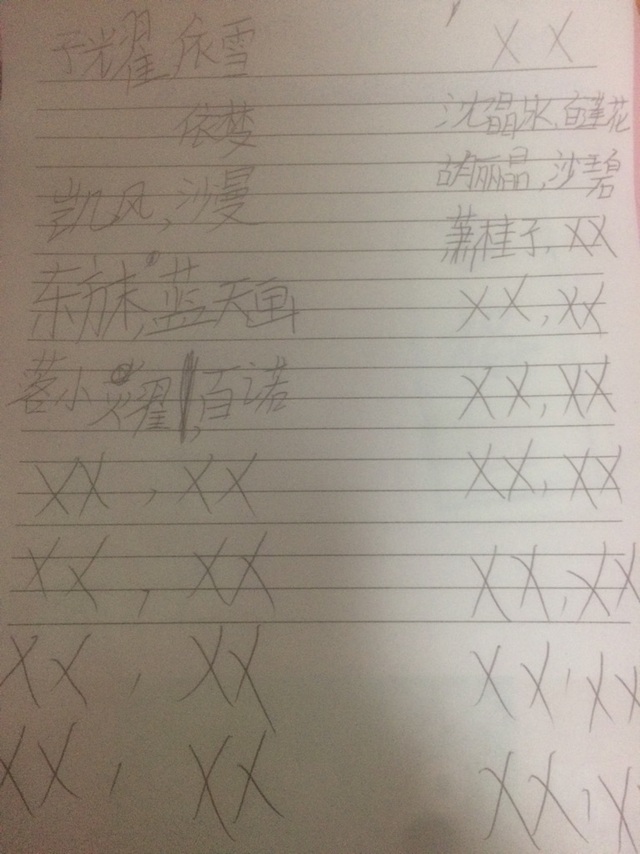 子耀 依雪
XX
依梦
沈晶冰,百莲花
凯风,沙曼
胡丽晶,沙碧
萧桂子,XX
东方末,蓝天画
XX,XX
蓉小耀,百诺
XX,XX
XX,XX
XX,XX
XX,XX
XX,XX
XX,XX
XX,XX
XX,XX
XX,XX